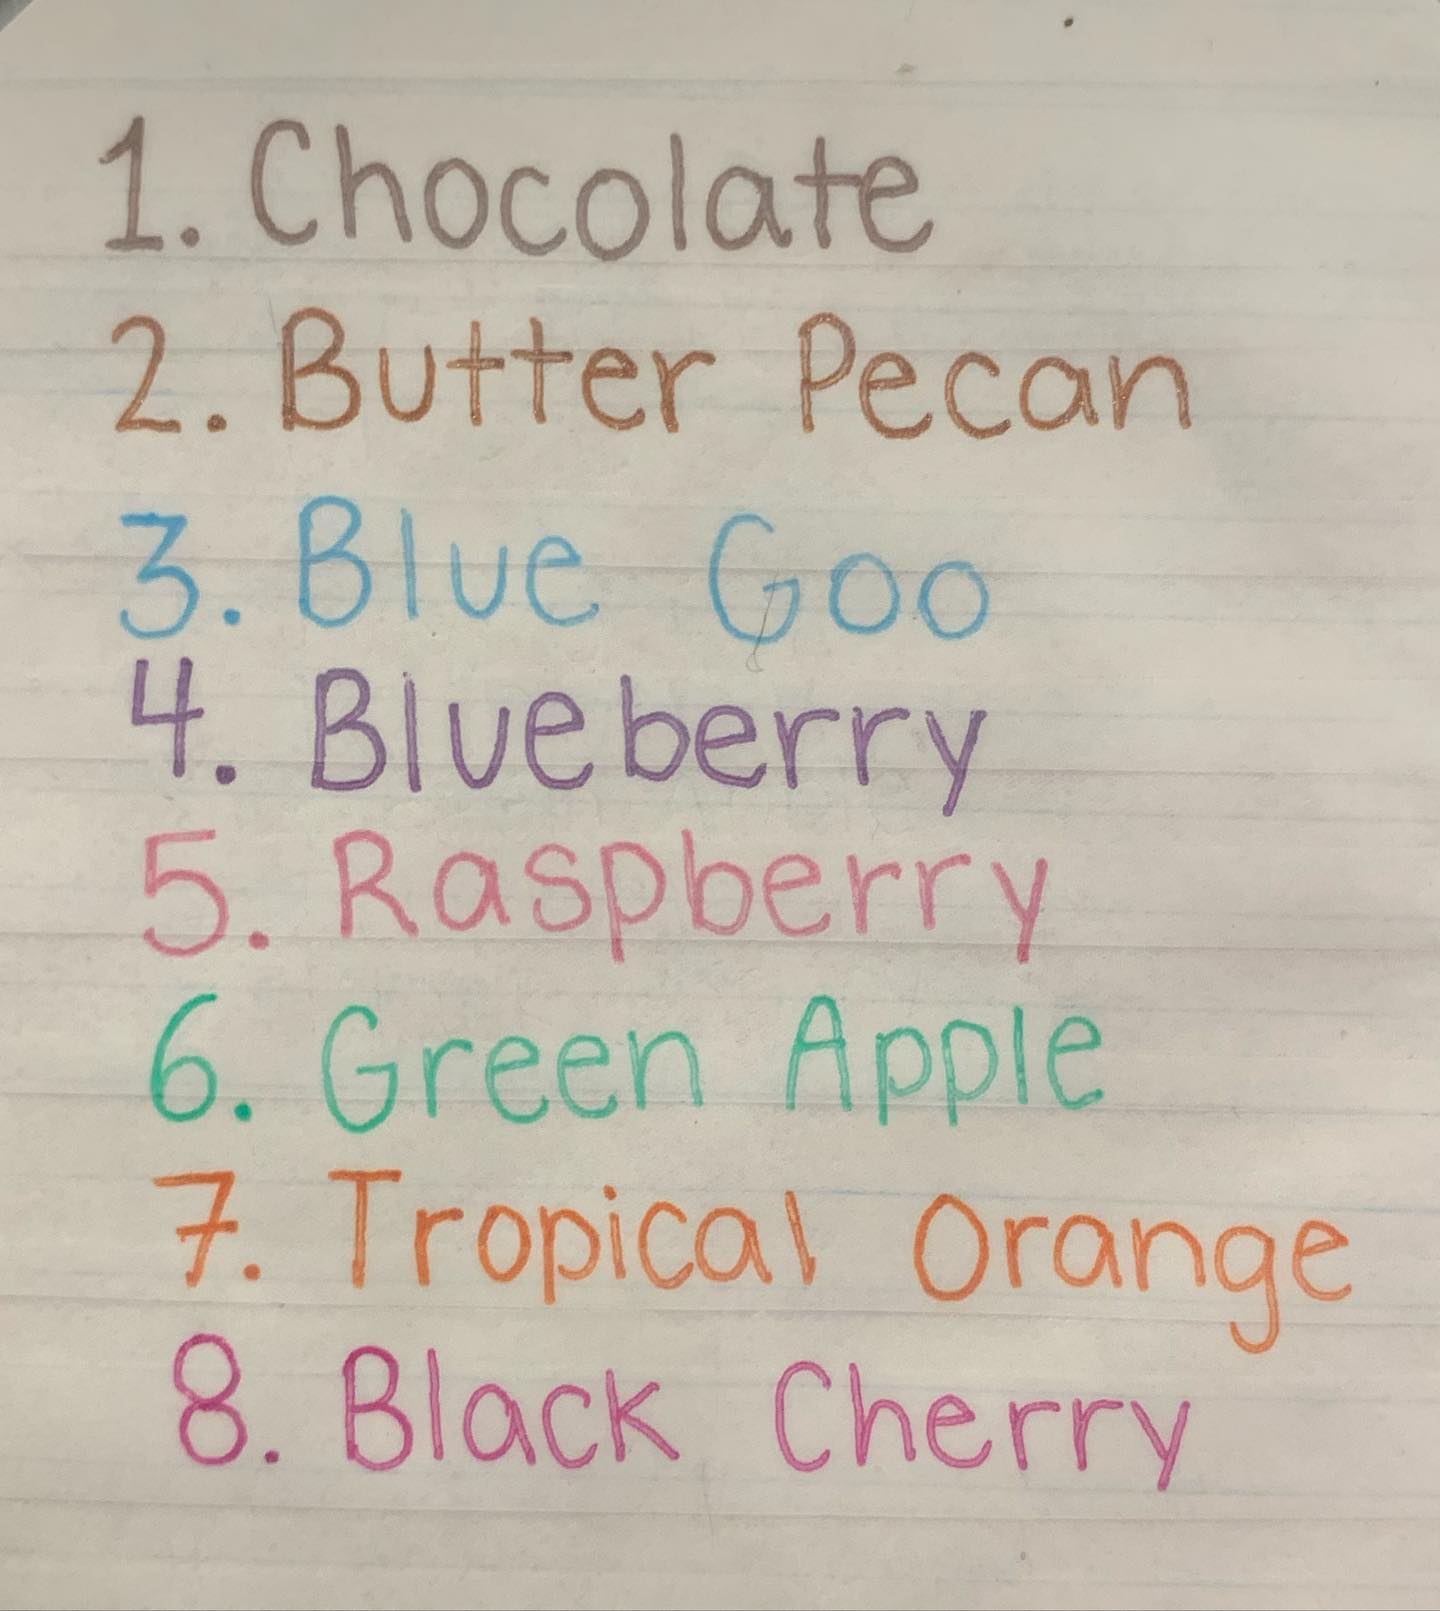 1. Chocolate
2. Butter Pecan
3. Blue Goo
4. Blueberry
5. Raspberry
6. Green Apple
7. Tropical Orange
8. Black Cherry